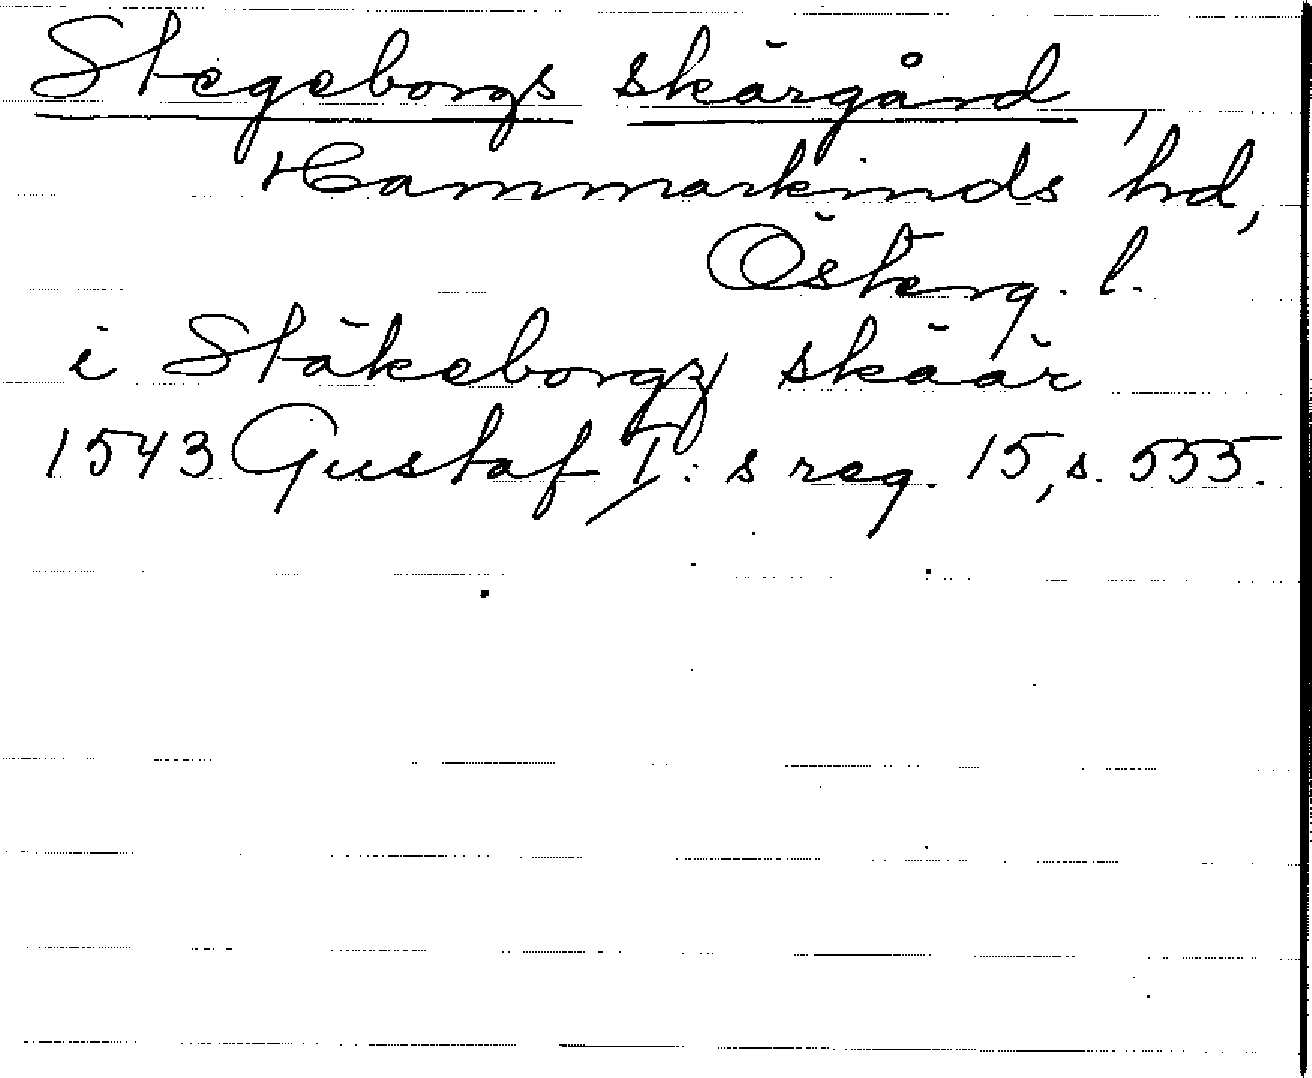 Stegeborgs skärgård,
Hammarkinds hd,
Österg. l.
i Stäkeborgz skäär
1543 Gustaf I:s reg. 15, s. 535.